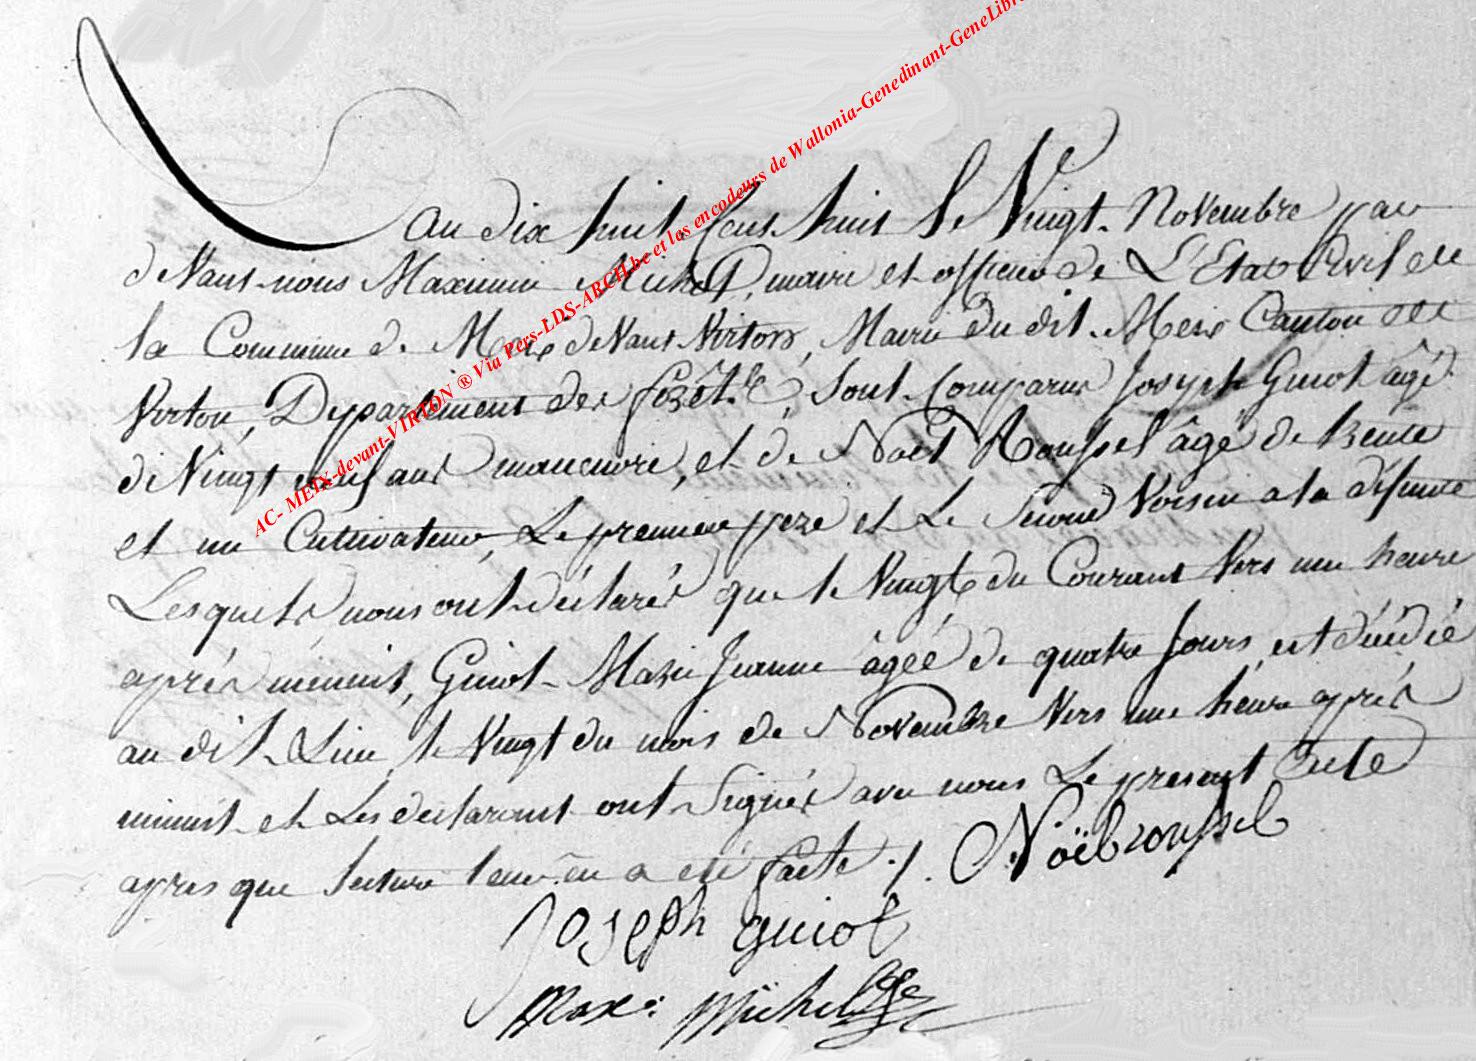 AC- METX-devant-VIRTON ® Via Pers-LDS-ARCH.be et les encodeurs de Wallonia-Genedinant-GeneLibre
an dix huit Cent huit le Vingt Novembre par
deVant nous Maximin Michel, maire et officier de L'Etat Civil de
la Commune de Meix deVant Virton, Mairie du dit Meix Canton de
Virton, Departement des forêts, sont Comparus Joseph Guiot âgé
de Vingt neuf ans manœuvre, et de Noël Roussel âgé de trente
et un Cultivateur, Le premier pere et Le Second Voisin a la défunte
Lesquels nous ont déclarés que le Vingt du Courant Vers une heure
après minuit, Guiot Marie Jeanne âgée de quatre jours est décédié
au dit Lieu le Vingt du mois de Novembre Vers une heure après
minuit et Les declarant ont Signés avec nous Le present acte
apres que lecture leur en a eté faite ./. Noël roussel
Joseph guiot
Max: Michel